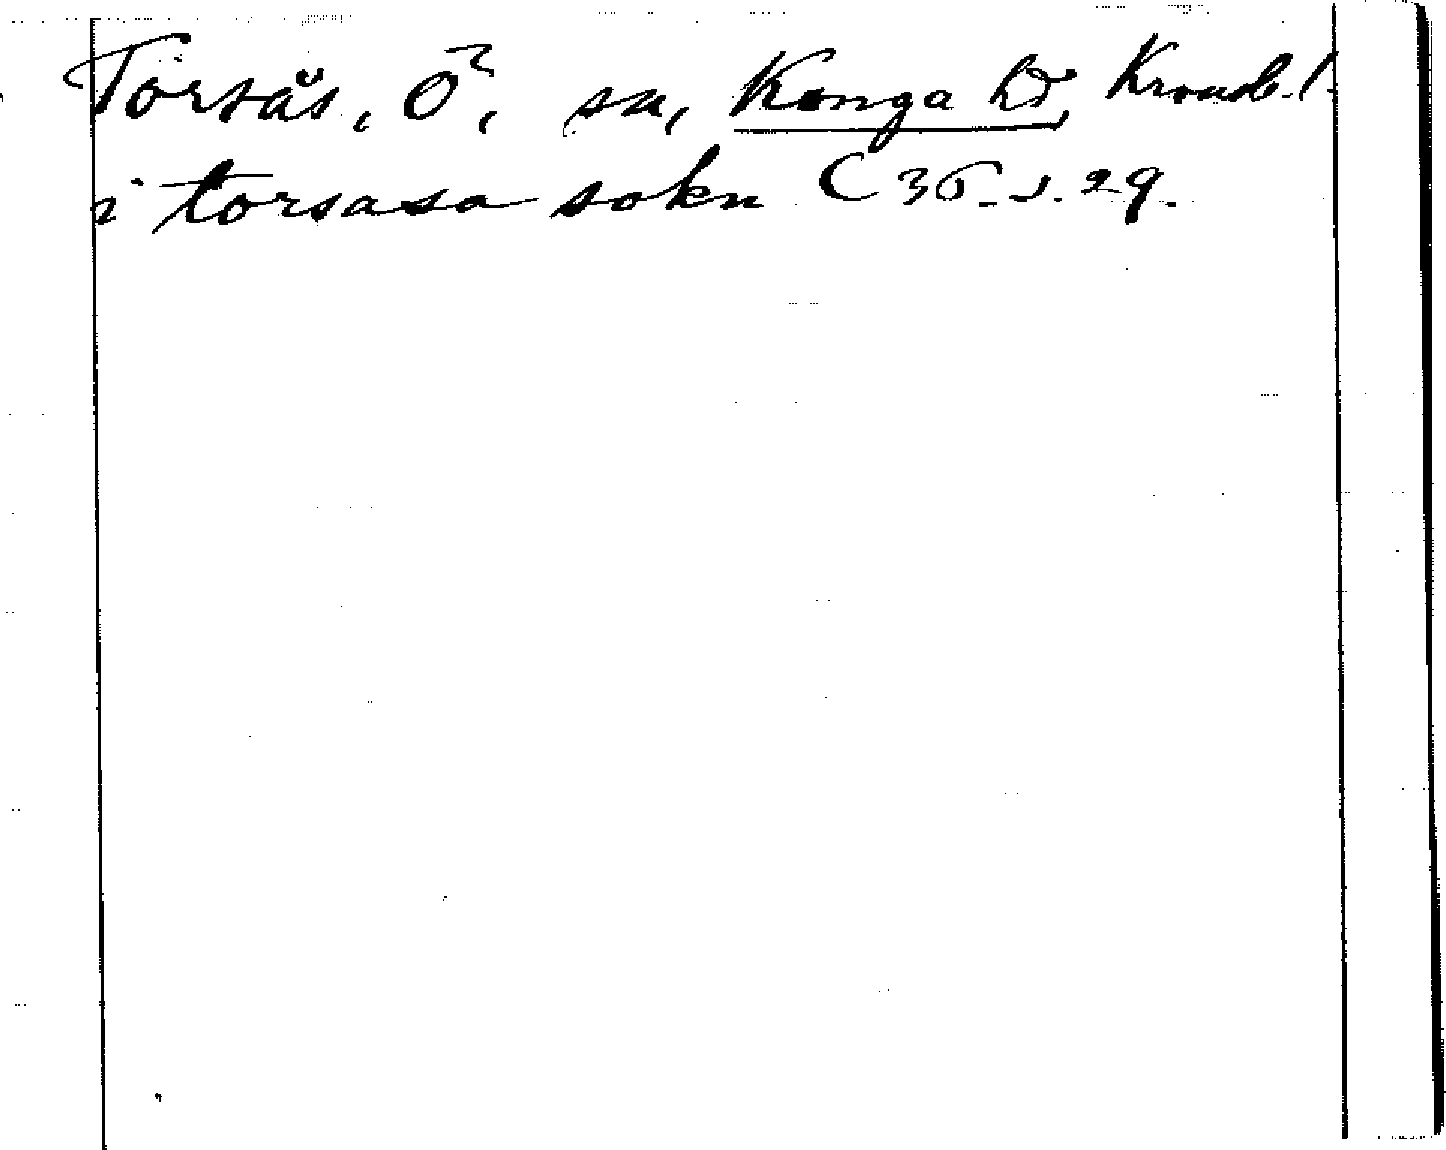 Torsås, Ö, sn, Konga hd, Kronob. l.
i torsasa sokn C 36. s. 29.